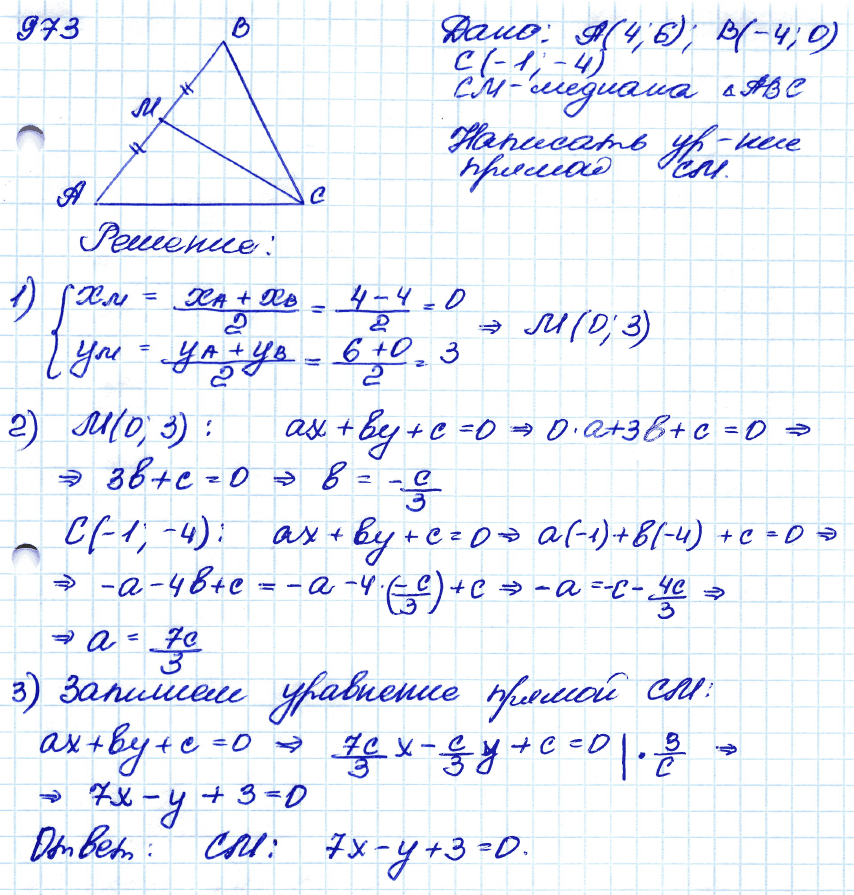 973
B
M
A
C
Дано: A(4; 6); B(-4; 0)
C(-1; -4)
CM - медиана ΔABC
Написать ур-ние
прямой CM.
Решение:
1) { xм = (xA + xB)/2 = (4 - 4)/2 = 0
yм = (yA + yB)/2 = (6 + 0)/2 = 3 ⇒ M(0; 3)
2) M(0; 3): ax + by + c = 0 ⇒ 0·a + 3b + c = 0 ⇒
⇒ 3b + c = 0 ⇒ b = -c/3
C(-1; -4): ax + by + c = 0 ⇒ a(-1) + b(-4) + c = 0 ⇒
⇒ -a - 4b + c = -a - 4·(-c/3) + c ⇒ -a = -c - 4c/3 ⇒
⇒ a = 7c/3
3) Запишем уравнение прямой CM:
ax + by + c = 0 ⇒ 7c/3 x - c/3 y + c = 0 | · 3/c ⇒
⇒ 7x - y + 3 = 0
Ответ: CM: 7x - y + 3 = 0.